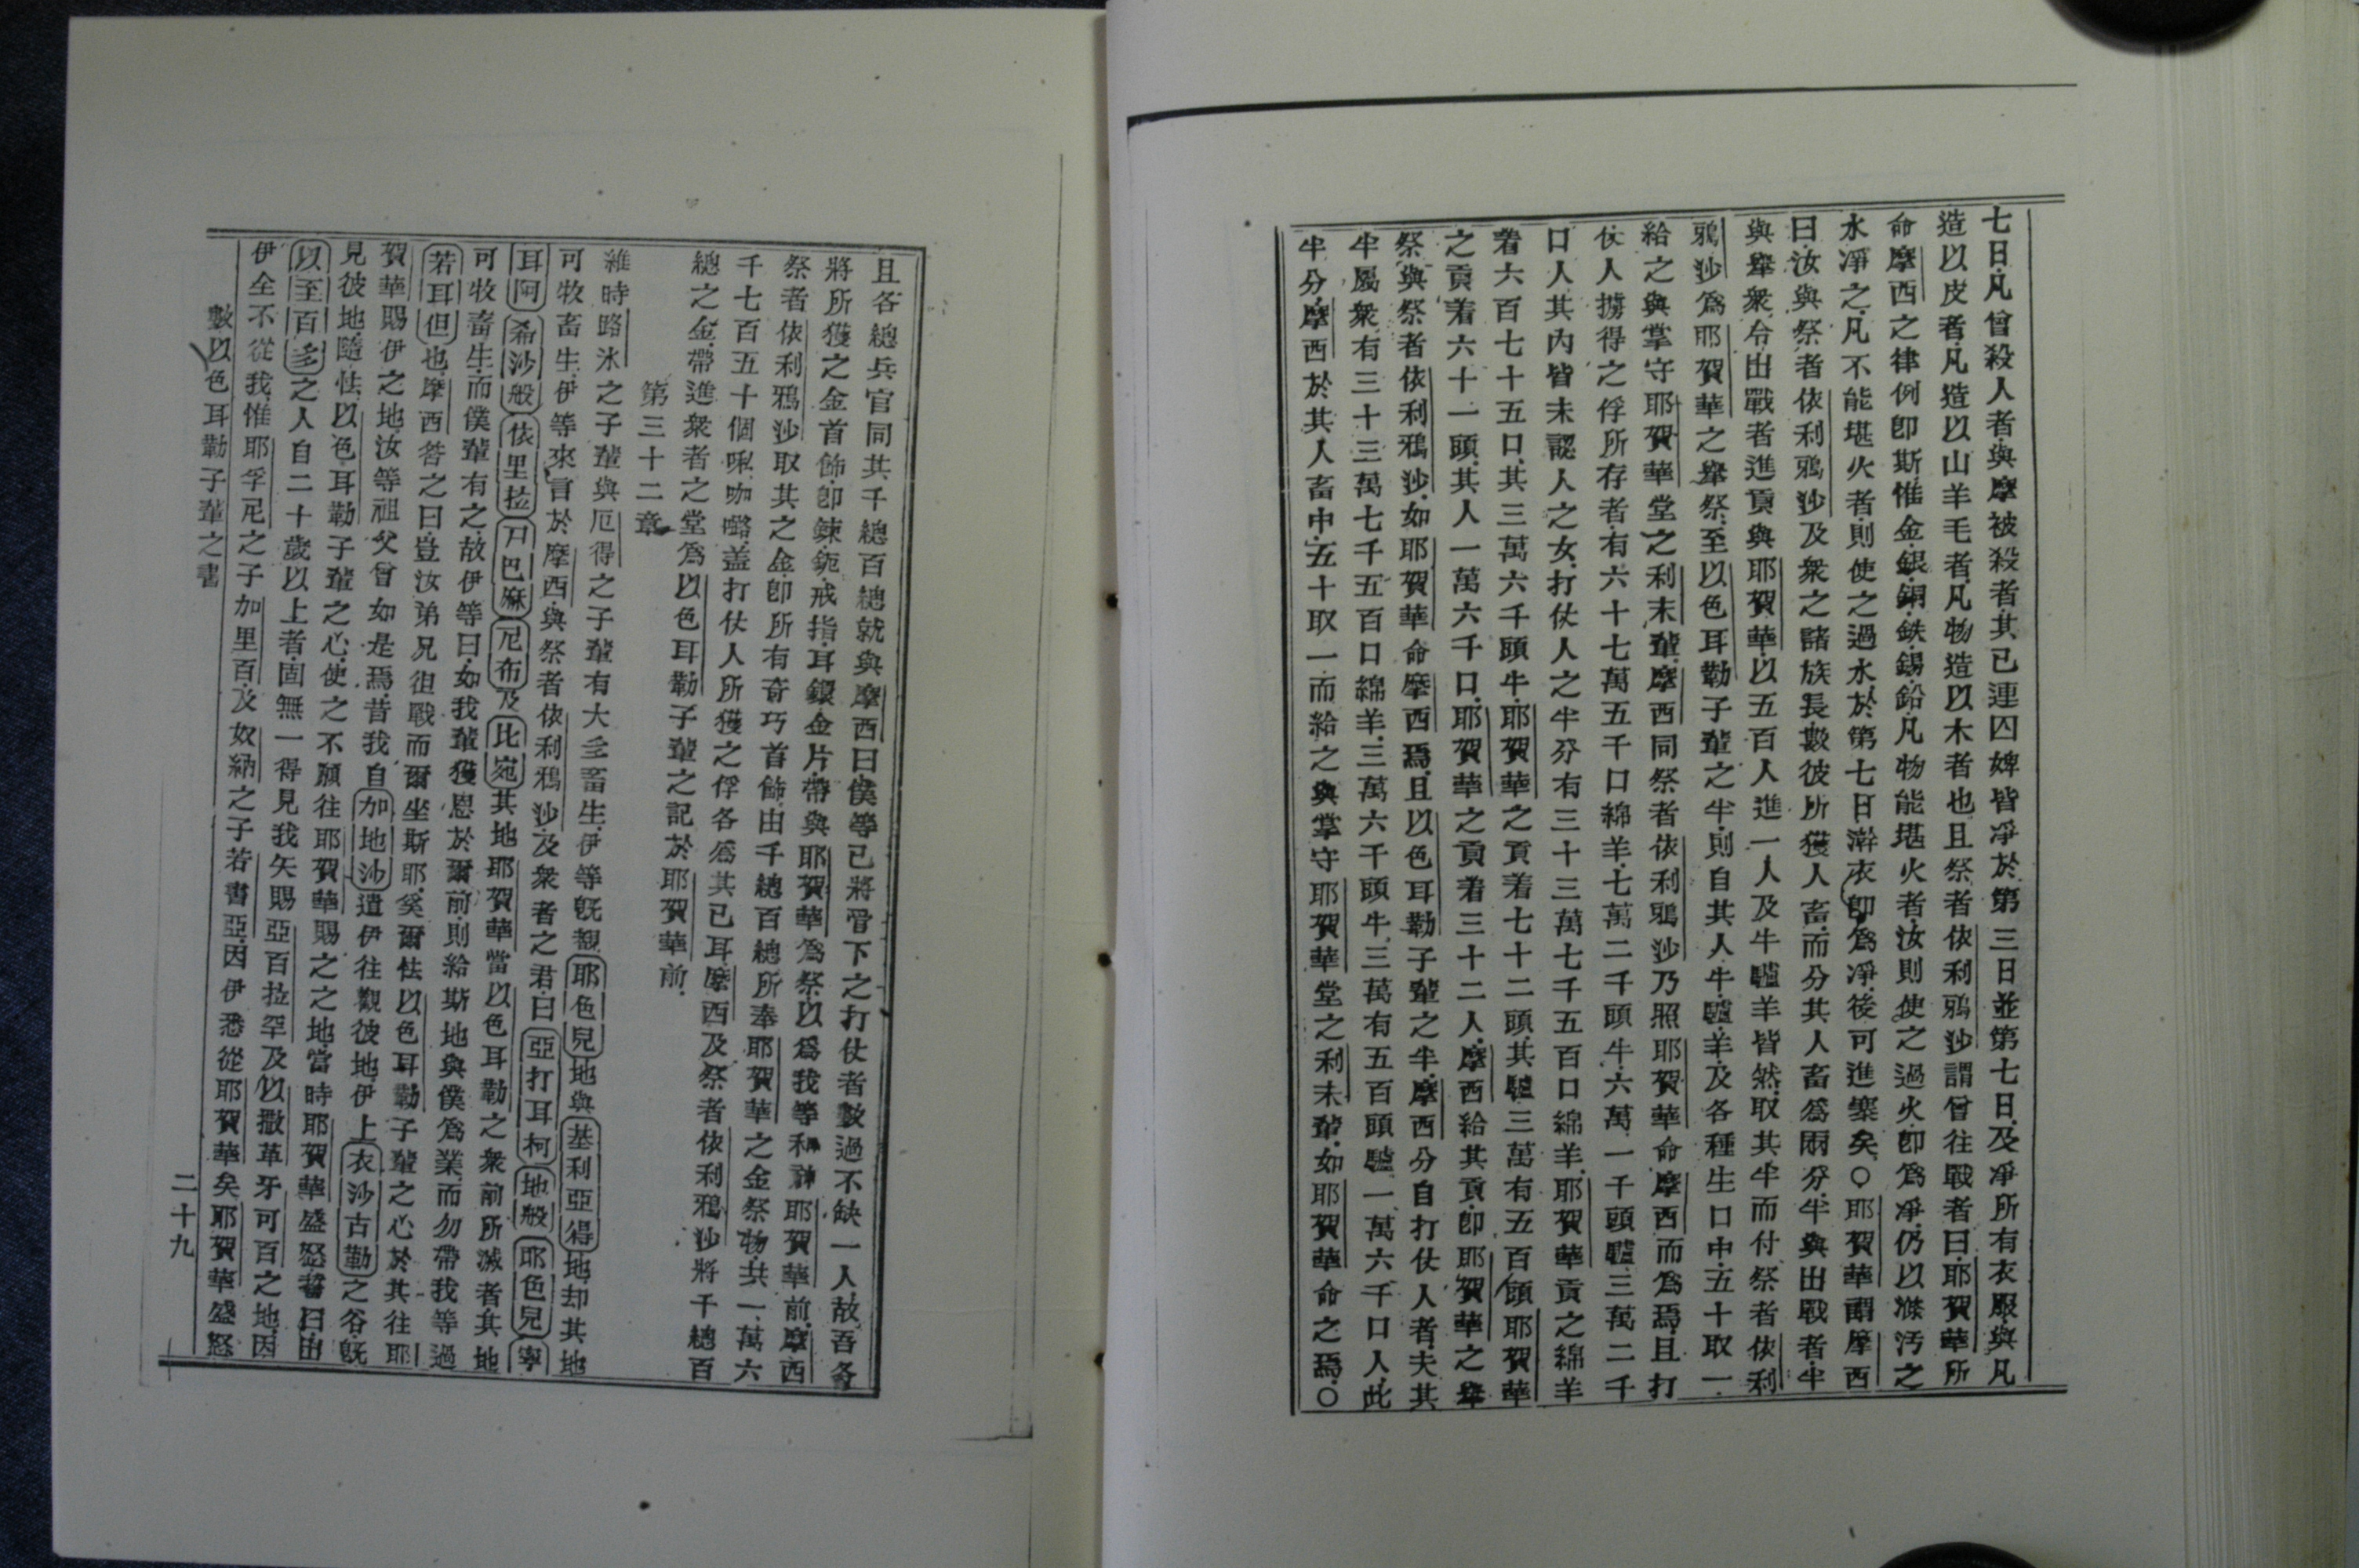 七日．凡曾殺人者．與摩被殺者．其已連囚婢皆凈於第三日並第七日．及凈所有衣服．與凡
造以皮者．凡造以山羊毛者．凡物造以木者也．且祭者依利鴉沙謂曾往戰者曰．耶賀華所
命摩西之律例卽斯．惟金．銀．銅．鉄．錫．鉛．凡物能堪火者．汝則使之過火卽爲凈．仍以滌汚之
水凈之．凡不能堪火者．則使之過水．於第七日澣衣．卽爲凈．後可進寨矣．○耶賀華謂摩西
曰．汝與祭者依利鴉沙．及衆之諸族長．數彼所獲人畜．而分其人畜爲兩分．半與出戰者．半
與舉衆．令出戰者進貢與耶賀華．以五百人進一人．及牛驢羊皆然．取其半而付祭者依利
鴉沙爲耶賀華之舉祭．至以色耳勒子輩之半．則自其人牛．驢．羊．及各種生口中．五十取一．
給之與掌守耶賀華堂之利未輩．摩西同祭者依利鴉沙乃照耶賀華命摩西而爲焉．且打
仗人擄得之俘所存者．有六十七萬五千口綿羊．七萬二千頭牛．六萬一千頭驢．三萬二千
口人．其內皆未認人之女．打仗人之半分有三十三萬七千五百口綿羊．耶賀華貢之綿羊
着六百七十五口．其三萬六千頭牛．耶賀華之貢着七十二頭．其驢三萬有五百頭．耶賀華
之貢着六十一頭．其人一萬六千口．耶賀華之貢着三十二人．摩西給其貢．卽耶賀華之舉
祭．與祭者依利鴉沙．如耶賀華命摩西焉．且以色耳勒子輩之半．摩西分自打仗人者．夫其
半屬衆．有三十三萬七千五百口綿羊．三萬六千頭牛．三萬有五百頭驢．一萬六千口人．此
半分．摩西於其人畜中．五十取一．而給之與掌守耶賀華堂之利未輩．如耶賀華命之焉．○
且各總兵官同其千總百總就與摩西曰．僕等已將管下之打仗者數過．不缺一人．故吾各
將所獲之金首飾．卽鍊．鈪．戒指．耳鐶．金片．帶與耶賀華爲祭．以爲我等和神耶賀華前．摩西
祭者依利鴉沙取其之金．卽所有奇巧首飾．由千總百總所奉耶賀華之金祭物．共一萬六
千七百五十個㖠咖𡀔．盖打仗人所獲之俘各爲其已耳．摩西及祭者依利鴉沙將千總百
總之金．帶進衆者之堂爲以色耳勒子輩之記於耶賀華前．
第三十二章
維時路氷之子輩與厄得之子輩有大多畜生．伊等旣覩耶色兒地與基利亞得地．却其地
可牧畜生．伊等來言於摩西．與祭者依利鴉沙．及衆者之君曰．亞打耳柯地般耶色兒寧
耳阿希沙般依里拉尸巴麻尼布及比宛其地耶賀華當以色耳勒之衆前所滅者．其地
可牧畜生．而僕輩有之．故伊等曰．如我輩獲恩於爾前．則給斯地與僕爲業．而勿帶我等過
若耳但也．摩西答之曰．豈汝弟兄徂戰．而爾坐斯耶．奚爾怯以色耳勒子輩之心於其往耶
賀華賜伊之地．汝等祖父曾如是焉．昔我自加地沙遣伊往觀彼地．伊上衣沙古勒之谷．旣
見彼地．隨怯以色耳勒子輩之心．使之不願往耶賀華賜之之地．當時耶賀華盛怒．誓曰．由
以至百多之人．自二十歲以上者．固無一得見我矢賜亞百拉罕．及以撒．革牙可百之地．因
伊全不從我．惟耶孚尼之子加里百．及奴納之子若書亞．因伊悉從耶賀華矣．耶賀華盛怒
數以色耳勒子輩之書
二十九